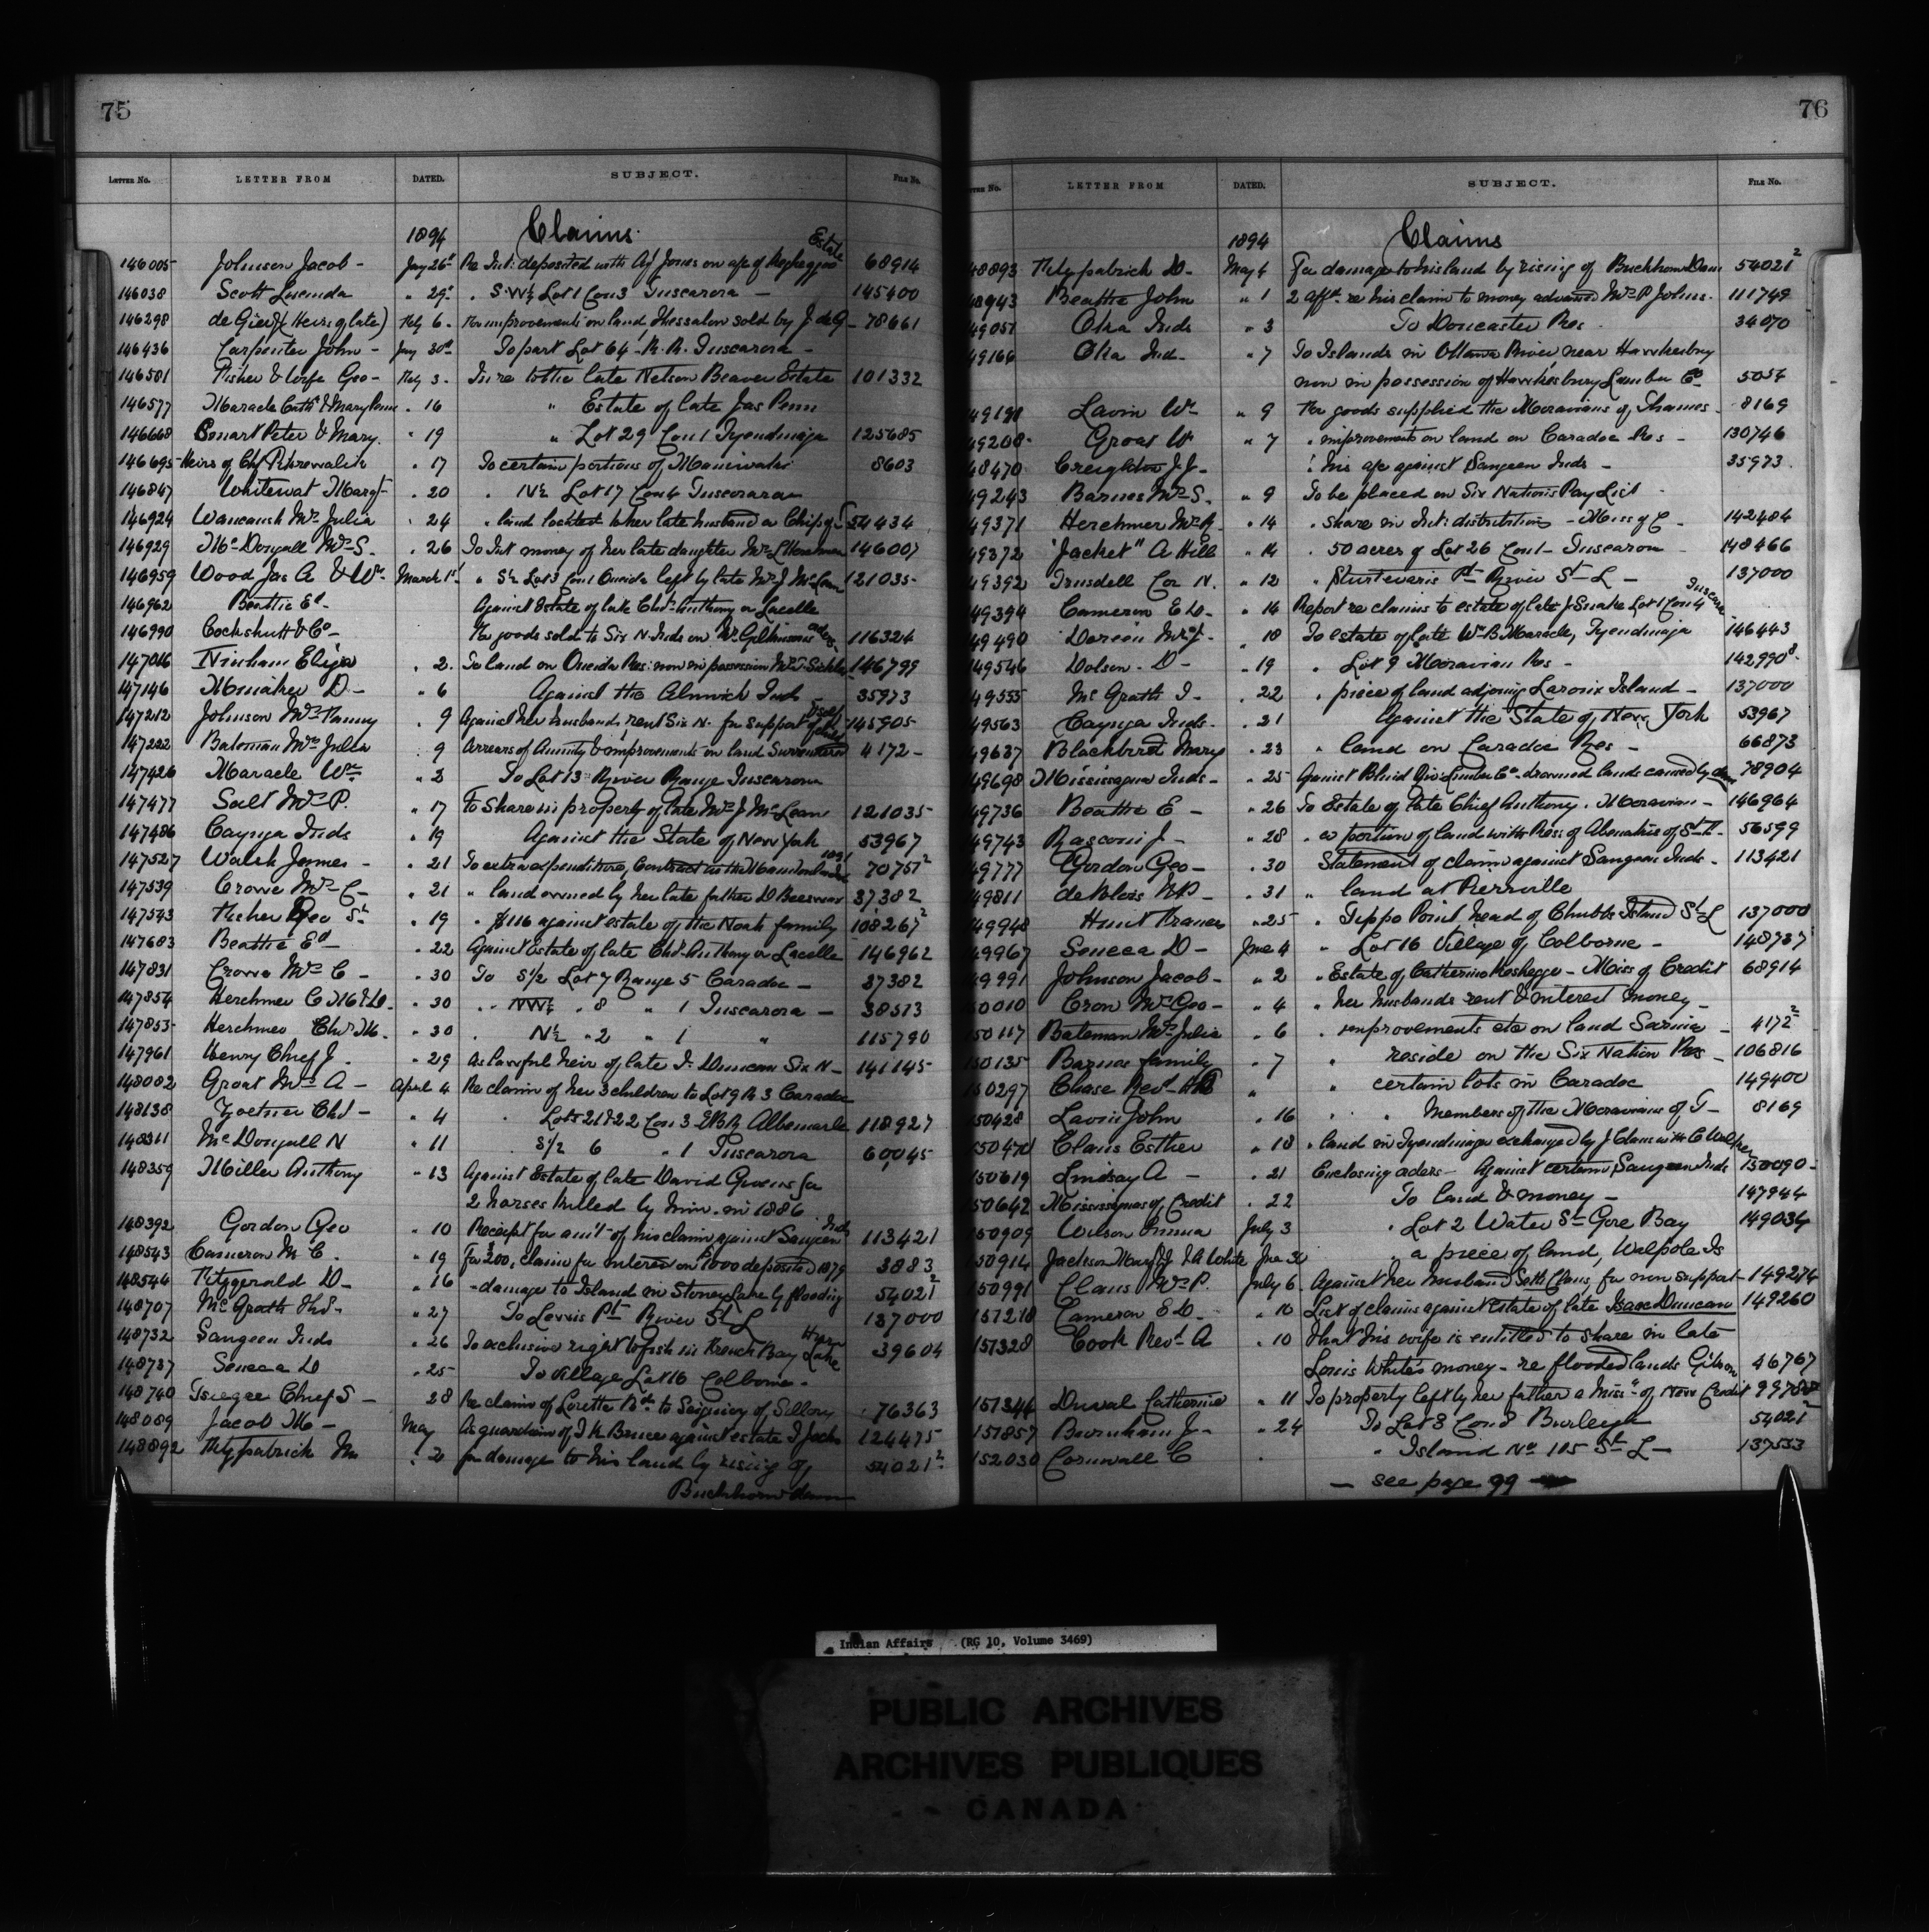 75
LETTER NO. LETTER FROM DATED. SUBJECT. FILE NO.
1894 Claims
146005 Johnson Jacob - Jany 26th Re Int: deposited with Ag't Jones on a/c of Estate 68914
146038 Scott Lucinda " 29th " S.W½ Lot 1 Con 3 Tuscarora - 145400
146298 (Heirs of late) Feby 6 - For improvements on land Thessalon sold by J. de G - 78661
146436 Carpenter John - Jany 30th To part Lot 64 - R.R. Tuscarora -
146501 Fisher & wife Geo - Feby 3 - In re to the late Nelson Beaver Estate 101332
146577 Maracle Cath & Mary Penn " 16 " Estate of late Jas Penn
146668 Smart Peter & Mary. " 19 " Lot 29 Con 1 Tyendinaga 125685
146695 Heirs of Chf " 17 To certain portions of Maniwaki 8603
146847 Whitewat Margt - " 20 " N½ Lot 17 Con 4 Tuscarora
146924 Wawanosh Mrs Julia " 24 " land located to her late husband a Chip of S 54434
146929 McDougall Mrs S. " 26 To Int money of her late daughter Mrs L Henchmer 146007
146959 Wood Jas A & Wm March 1st " S½ Lot 3 Con 1 Oneida left by late Mrs J McLean 121035
146962 Beattie Ed - Against Estate of late Chd Anthony or Lacelle
146990 Cockshutt & Co - For goods sold to Six N. Inds on Wm Gilkinsons orders 116324
147016 Ninham Elija " 2. To land on Oneida Res: now in possession Mrs T. Sickles 146799
147146 Moniaker D - " 6 Against the Alnwick Inds - 35973
147212 Johnson Mrs Fanny " 9 Against her husband, rent Six N. for support of self & child 145905
147222 Bateman Mrs Julia 9 Arrears of Annuity & improvements on land Surrendered 4172 -
147426 Maracle Wm " 3 To Lot 13 River Range Tuscarora
147477 Salt Mrs P. " 17 To Share in property of late Mrs J McLean 121035
147486 Cayuga Inds " 19 Against the State of New York 53967
147527 Walsh James - " 21 To extra expenditure, Contract in the 70751²
147539 Crowe Mrs C - " 21 " land owned by her late father D Beeswax 37382
147543 Fisher Geo Sr " 19 " $116 against estate of the Noah family 108267²
147683 Beattie Ed - " 22 Against Estate of late Chd. Anthony or Lacelle 146962
147831 Crowe Mrs C - " 30 To S½ Lot 7 Range 5 Caradoc - 37382
147854 Herchmer C M & D. " 30 " NW½ " 8 " 1 Tuscarora - 38513
147855 Herchmer Chs M. " 30 " N½ " 2 " 1 " 115790
147961 Henry Chief J. " 29 As lawful heir of late I. Duncan Six N - 141145
148082 Groat Mrs A - April 4 Re claim of her 3 children to Lot 9 R 3 Caradoc
148138 Chd - " 4 " Lots 21 & 22 Con 3 E B R Albemarle 118927
148311 McDougall N " 11 S½ 6 " 1 Tuscarora 60045
148359 Miller Anthony " 13 Against Estate of late David Givens for
2 horses killed by him in 1886
148392 Gordon Geo " 10 Receipt for am't of his claim against Saugeen Inds 113421
148543 Cameron M C. " 19 For $200, claim for interest on $1000 deposited 1879 3883
148544 Fitzgerald D - " 16 - damage to Island in Stoney Lake by flooding 54021²
148707 McGrath Thd - " 27 To Lewis Pt River St L 137000
148732 Saugeen Inds " 26 To exclusive right to fish in French Bay Lake Huron 39604
148737 Seneca D " 25 To Village Lot 16 Colborne -
148740 Tsiegee Chief S - 28 Re claim of Lorette Bd to Seigniory of Sillery 76363
148089 Jacob M - May As guardian of I K Bruce against estate I Jacobs 124475
148892 Fitzpatrick M " 2 for damage to his land by rising of 54021²
Buckhorn dam
76
LETTER NO. LETTER FROM DATED. SUBJECT. FILE NO.
1894 Claims
48893 Fitzpatrick D - May 4 For damage to his land by rising of Buckhorn Dam 54021²
48943 Beattie John " 1 2 affts. re his claim to money advanced Mrs P Johns. 111749
49051 Oka Inds " 3 To Doncaster Res 34070
49166 Oka Ind - " 7 To Islands in Ottawa River near Hawkesbury
now in possession of Hawkesbury Lumber Co 5054
49191 Lavin Wm " 9 For goods supplied the Moravians of Thames - 8169
49208 Groat W " 7 " improvements on land on Caradoc Res - 130746
48470 Creighton J.J - " his a/c against Saugeen Inds - 35973
49243 Barnes Mrs S. " 9 To be placed on Six Nations Pay List
49371 Herchmer Mrs R. " 14 " share in Int: distribution - Miss of C - 142484
49372 "Jacket" A Hill " 14 " 50 acres of Lot 26 Con 1 - Tuscarora 148466
49392 Trusdell Cor N. " 12 " Sturtevants Pt River St L - 137000
49394 Cameron E D - " 14 Report re claims to estate of late J Snake Lot 1 Con 4 Tuscara
49490 Mrs J - " 18 To estate of late Wm B Maracle, Tyendinaga 146443
49546 Dolson - D - " 19 " Lot 9 Moravian Res - 142990⁸
49555 McGrath T - " 22 " piece of land adjoing Laronix Island - 137000
49563 Cayuga Inds - " 21 Against the State of New York 53967
49637 Blackbird Mary " 23 " land on Caradoc Res - 66873
49698 Mississagua Inds - " 25 Against Blind Riv: Lumber Co - drowned lands caused by dam 78904
49736 Beattie E - " 26 To Estate of late Chief Anthony. Moravian - 146964
49743 Rasconi J - " 28 " a portion of land with Res: of Abenakis of St F. 56599
49777 Gordon Geo - " 30 Statement of claim against Saugeen Inds - 113421
49811 " 31 " land at Pierrville
49948 Hunt Frances " 25 " Tippo Point head of Chubbs Island St L 137000
49967 Seneca D - June 4 " Lot 16 Village of Colborne - 148737
49991 Johnson Jacob - " 2 " Estate of Catherine Keshegge - Miss of Credit 68914
50010 Crow Mrs Geo - " 4 " her husbands rent & interest money -
150117 Bateman Mrs Julia " 6 " improvements etc on land Sarnia - 4172²
150135 Barnes family " 7 " reside on the Six Nation Res - 106816
150297 Chase Revd H P " " certain lots in Caradoc 149400
150428 Lavin John " 16 " " Members of the Moravians of T - 8169
150470 Claus Esther " 18 " land in Tyendinaga exchanged by J Claus with C Walker
150619 Lindsay A - " 21 Enclosing orders - Against certain Saugeen Inds 150090 -
150642 Mississaguas of Credit " 22 To land & money - 147944
150909 Wilson Emma July 3 " Lot 2 Water St Gore Bay 149034
150914 Jackson Henry & J A White June 30 " a piece of land, Walpole Is
150991 Claus Mrs P. July 6. Against her husband Seth Claus, for non support - 149274
151218 Cameron E D - " 10 List of claims against estate of late Isaac Duncan 149260
151328 Cook Revd A " 10 That his wife is entitled to share in late
Louis White's money - re flooded lands Gibson 46767
151344 Duval Catherine " 11 To property left by her father a Miss'a of New Credit 99788
151857 Burnham J - " 24 To Lot 8 Con 8 Burleigh 54021²
152030 Cornwall C " " Island No 105 St L - 137533
- see page 99 -
Indian Affairs (RG 10, Volume 3469)
PUBLIC ARCHIVES
ARCHIVES PUBLIQUES
CANADA